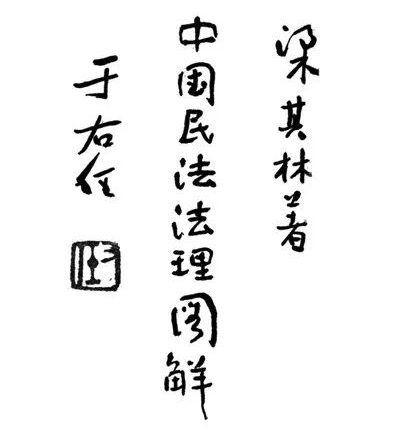 梁其林著
中国民法法理图解
于右任